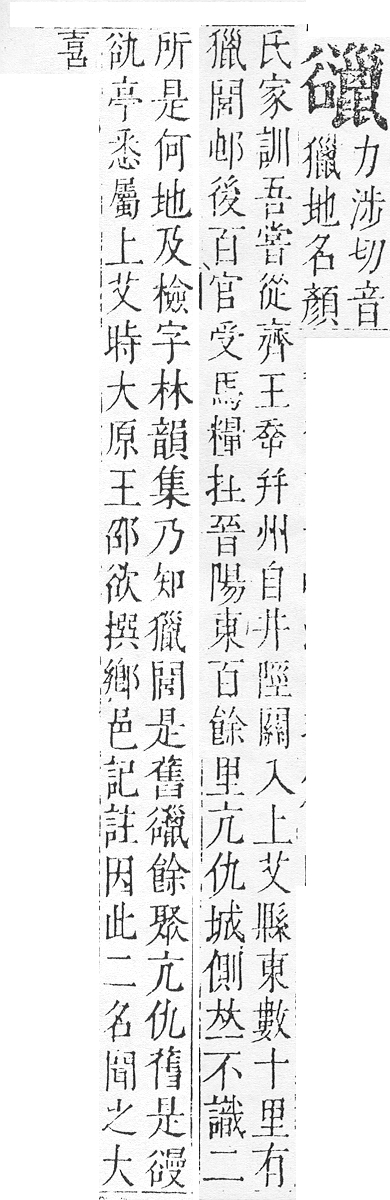 䜲
力涉切音
獵地名顏
氏家訓吾嘗從齊王幸并州自井陘關入上艾縣東數十里有
獵閭邨後百官受馬糧在晉陽東百餘里亢仇城側竝不識二
所是何地及檢字林韻集乃知獵閭是舊䜲餘聚亢仇舊是䜱
䜪亭悉屬上艾時大原王邵欲撰鄉邑記註因此二名聞之大
喜